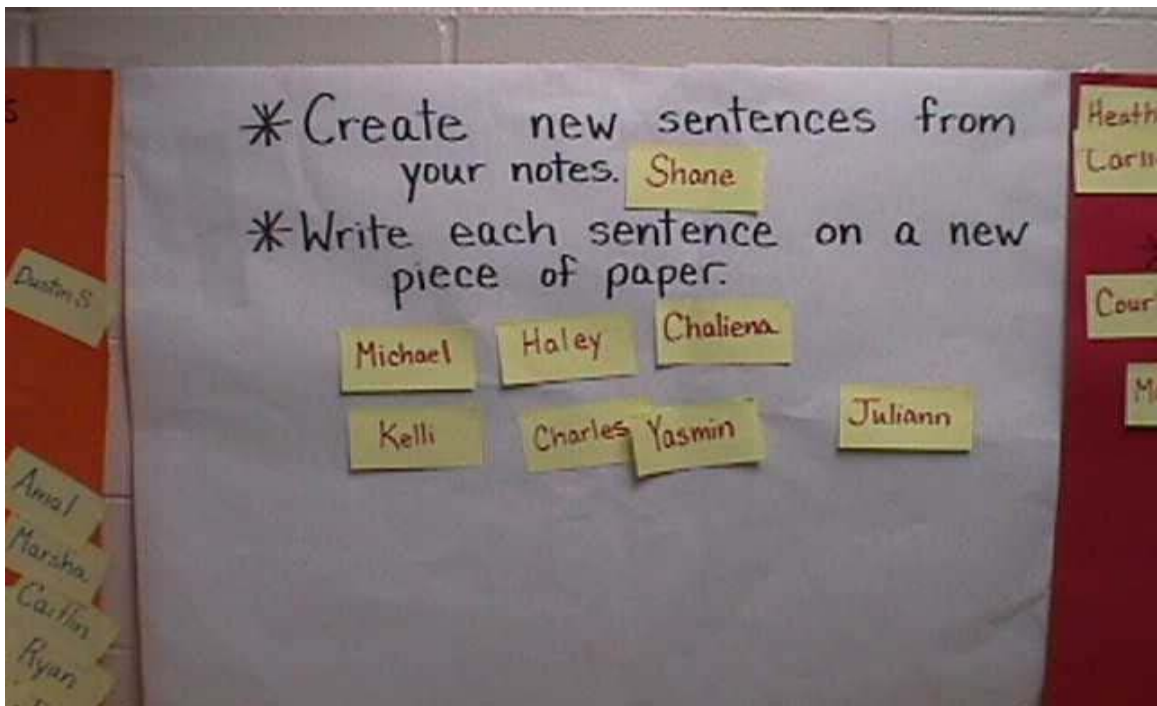 *Create new sentences from
your notes. Shane
*Write each sentence on a new
piece of paper.
Michael Haley Chaliena
Kelli Charles Yasmin Juliann
Dustin S
Amal
Marsha
Caitlin
Ryan